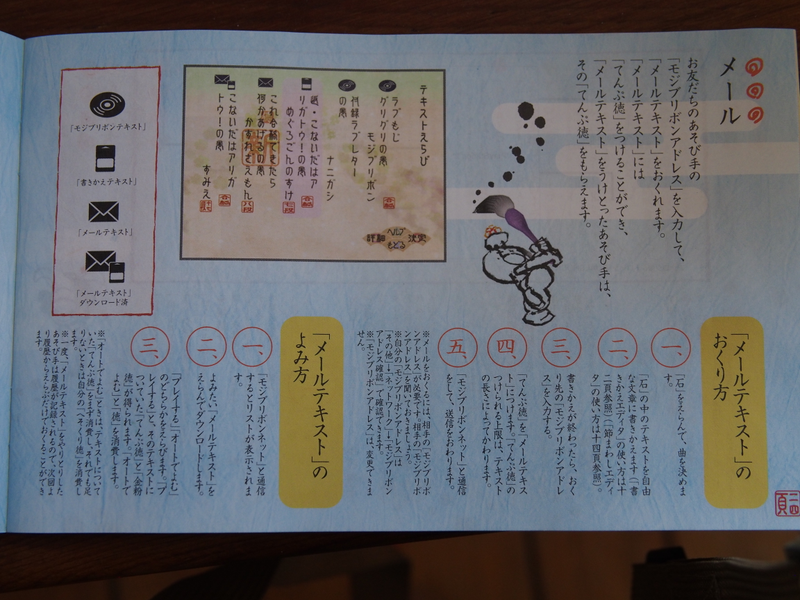 メール
お友だちのあそび手の
「モジブリボンアドレス」を入力して、
「メールテキスト」をおくれます。
「メールテキスト」には
「てんぷ徳」をつけることができ、
「メールテキスト」をうけとったあそび手は、
その「てんぷ徳」をもらえます。
テキストえらび
ラブもじ
グリグリの席
モジブリボン
付録ラブレター
の席
ナニガシ
こないだはア
リガトウ!の席
こないだはアリガ
トウ!の席
すみえ
ヘルプ
もどる
詳細
決定
「モジブリボンテキスト」
「書きかえテキスト」
「メールテキスト」
「メールテキスト」
ダウンロード済
「メールテキスト」の
おくり方
一、
「石」をえらんで、曲を決めま
す。
二、
「石」の中のテキストを自由
な文章に書きかえます(「書
きかえエディタ」の使い方は十
二頁参照)(「節まわしエディ
タ」の使い方は十四頁参照)。
三、
書きかえが終わったら、おく
り先の「モジブリボンアドレ
ス」を入力する。
四、
「てんぷ徳」を「メールテキス
ト」につけます。「てんぷ徳」の
つけられる上限は、テキスト
の長さによってかわります。
五、
「モジブリボンネット」と通信
をして、送信をおわります。
※メールをおくるには、相手の「モジブリボ
ンアドレス」が必要です。相手の「モジブリボ
ンアドレス」を聞いておきましょう。
※自分の「モジブリボンアドレス」は
「その他」「ネットワーク」「モジブリボン
アドレス確認」で確認できます。
※「モジブリボンアドレス」は、変更できま
せん。
「メールテキスト」の
よみ方
一、
「モジブリボンネット」と通信
するとリストが表示されま
す。
二、
よみたい「メールテキスト」を
えらんでダウンロードします。
三、
「プレイする」「オートでよむ」
のどちらかをえらびます。「プ
レイする」と、そのテキストに
ついていた「てんぷ徳」と金粉
徳が得られます。「オートで
よむ」と「徳」を消費します。
※「オートでよむ」ときは、「テキストについて
いた「てんぷ徳」をまず消費し、それでも足
りないときは自分の「へそくり徳」を消費し
ます。
※一度、「メールテキスト」をやりとりした
あそび手は履歴が記録されるので、次回よ
り履歴からえらぶだけでおくることができ
ます。
二四
頁